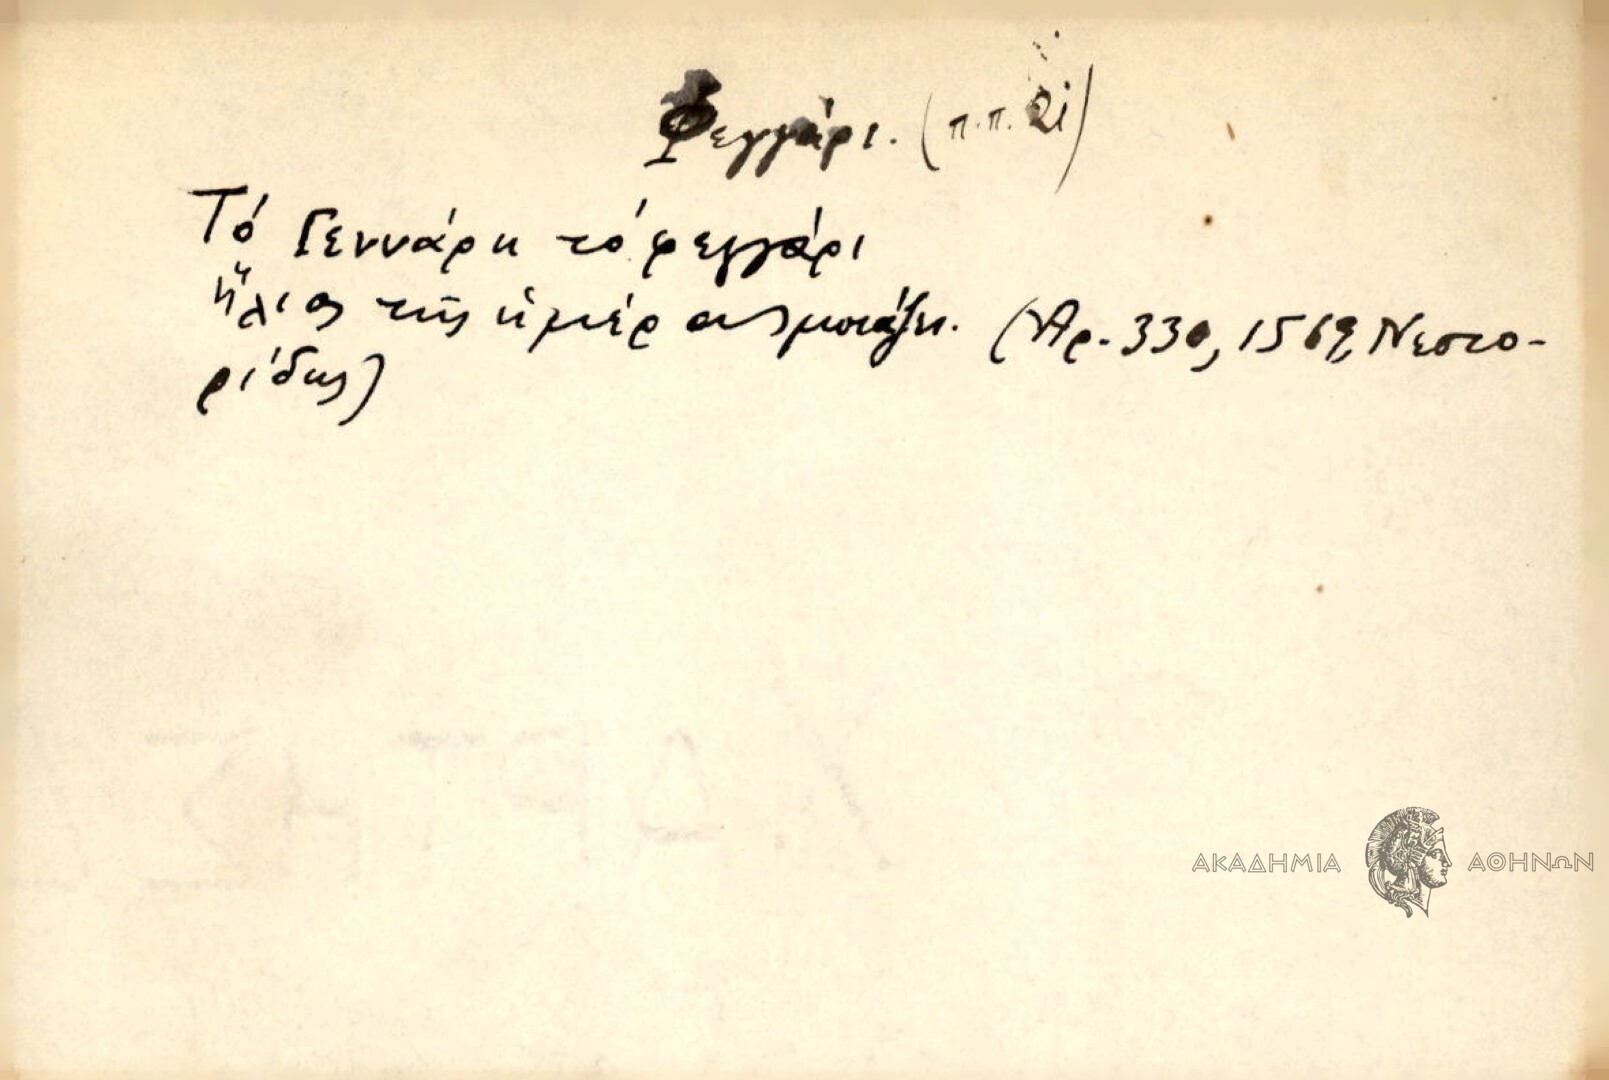 Φεγγάρι. (π.π. 2i)
Τό Γεννάρη τό φεγγάρι
ἥλιος τῆς ἡμέρας μοιάζει. (Ἀρ. 330, 1569, Νεστο-
ρίδης)
ΑΚΑΔΗΜΙΑ ΑΘΗΝΩΝ